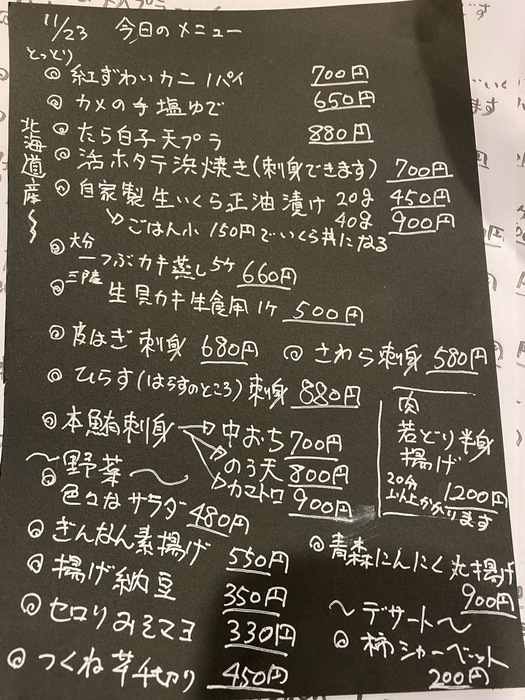 11/23 今日のメニュー
とっとり
◎紅ずわいカニ1パイ 700円
◎カメの手塩ゆで 650円
北海道産
◎たら白子天プラ 880円
◎活ホタテ浜焼き(刺身できます) 700円
◎自家製生いくら正油漬け 20g 450円
40g 900円
↳ごはん小150円でいくら丼になる
大分
◎一つぶカキ蒸し5ケ 660円
三陸
◎生貝カキ生食用1ケ 500円
◎皮はぎ刺身 680円 ◎さわら刺身 580円
◎ひらす(はらすのところ)刺身 880円
◎本鮪刺身→中おち700円
→のう天 800円
→カマトロ 900円
肉
若どり半身
揚げ
20分 1200円
以上かかります
〜野菜〜
◎色々なサラダ 480円
◎ぎんなん素揚げ 550円
◎揚げ納豆 350円
◎セロリみそマヨ 330円
◎つくね芋千切り 450円
◎青森にんにく丸揚げ
900円
〜デザート〜
◎柿シャーベット
200円